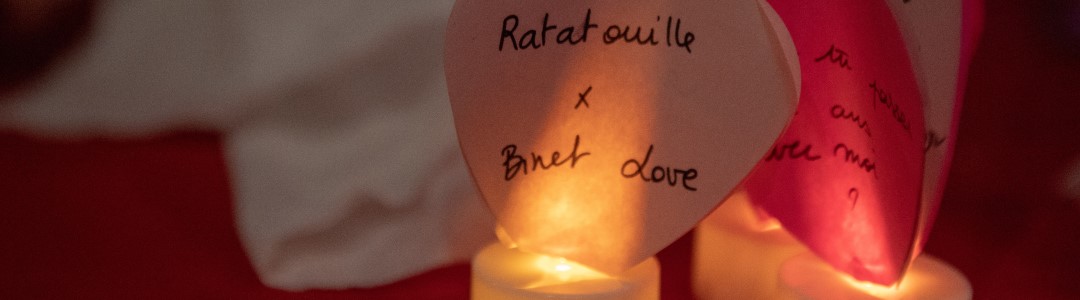 Ratatouille
x
Binet Love
tu
avec moi
?